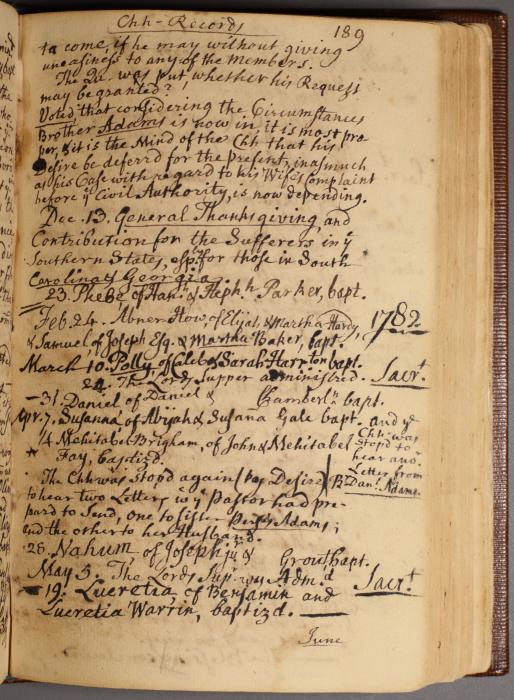 Chh-Records 189
to come, if he may without giving
uneasiness to any of the Members.
The Qu. was put, whether his Request
may be granted?
Voted that considering the Circumstances
Brother Adams is now in, it is most pro-
per, & it is the Mind of the Chh that his
Desire be deferrd for the present, inasmuch
as his Case with regard to his Wife's Complaint
before ye Civil Authority, is now depending.
Dec. 13. General Thanksgiving, and
Contribution for the Sufferers in ye
Southern States, espy. for those in South
Carolina & Georgia
23. Phebe of Hanh. & Hephh. Parker, bapt.
1782.
Feb. 24. Abner How, of Elijah & Martha Hardy,
& Samuel of Joseph Esq. & Martha Baker, bapt.
March 10. Polly of Caleb & Sarah bapt.
24. The Lords Supper administred. Sacrt.
31. Daniel of Daniel & Chamberln bapt.
Apr. 7. Susanna of Abijah & Susanna Gale bapt. and ye
Chh was
stopd to
hear
Letter from
Br Danl. Adams.
14 Mehitabel Brigham, of John & Mehitabel
Fay, baptizd.
The Chh was stopd again (by Desire)
to hear two Letters, wc ye Pastor had pre-
pard to Send, one to Sister Persis Adams;
and the other to her Husband.
28. Nahum, of Joseph junr & Grout bapt.
May 5. The Lords Supr. was Admd. Sacrt.
19. Lucretia, of Benjamin and
Lucretia Warrin, baptizd.
June